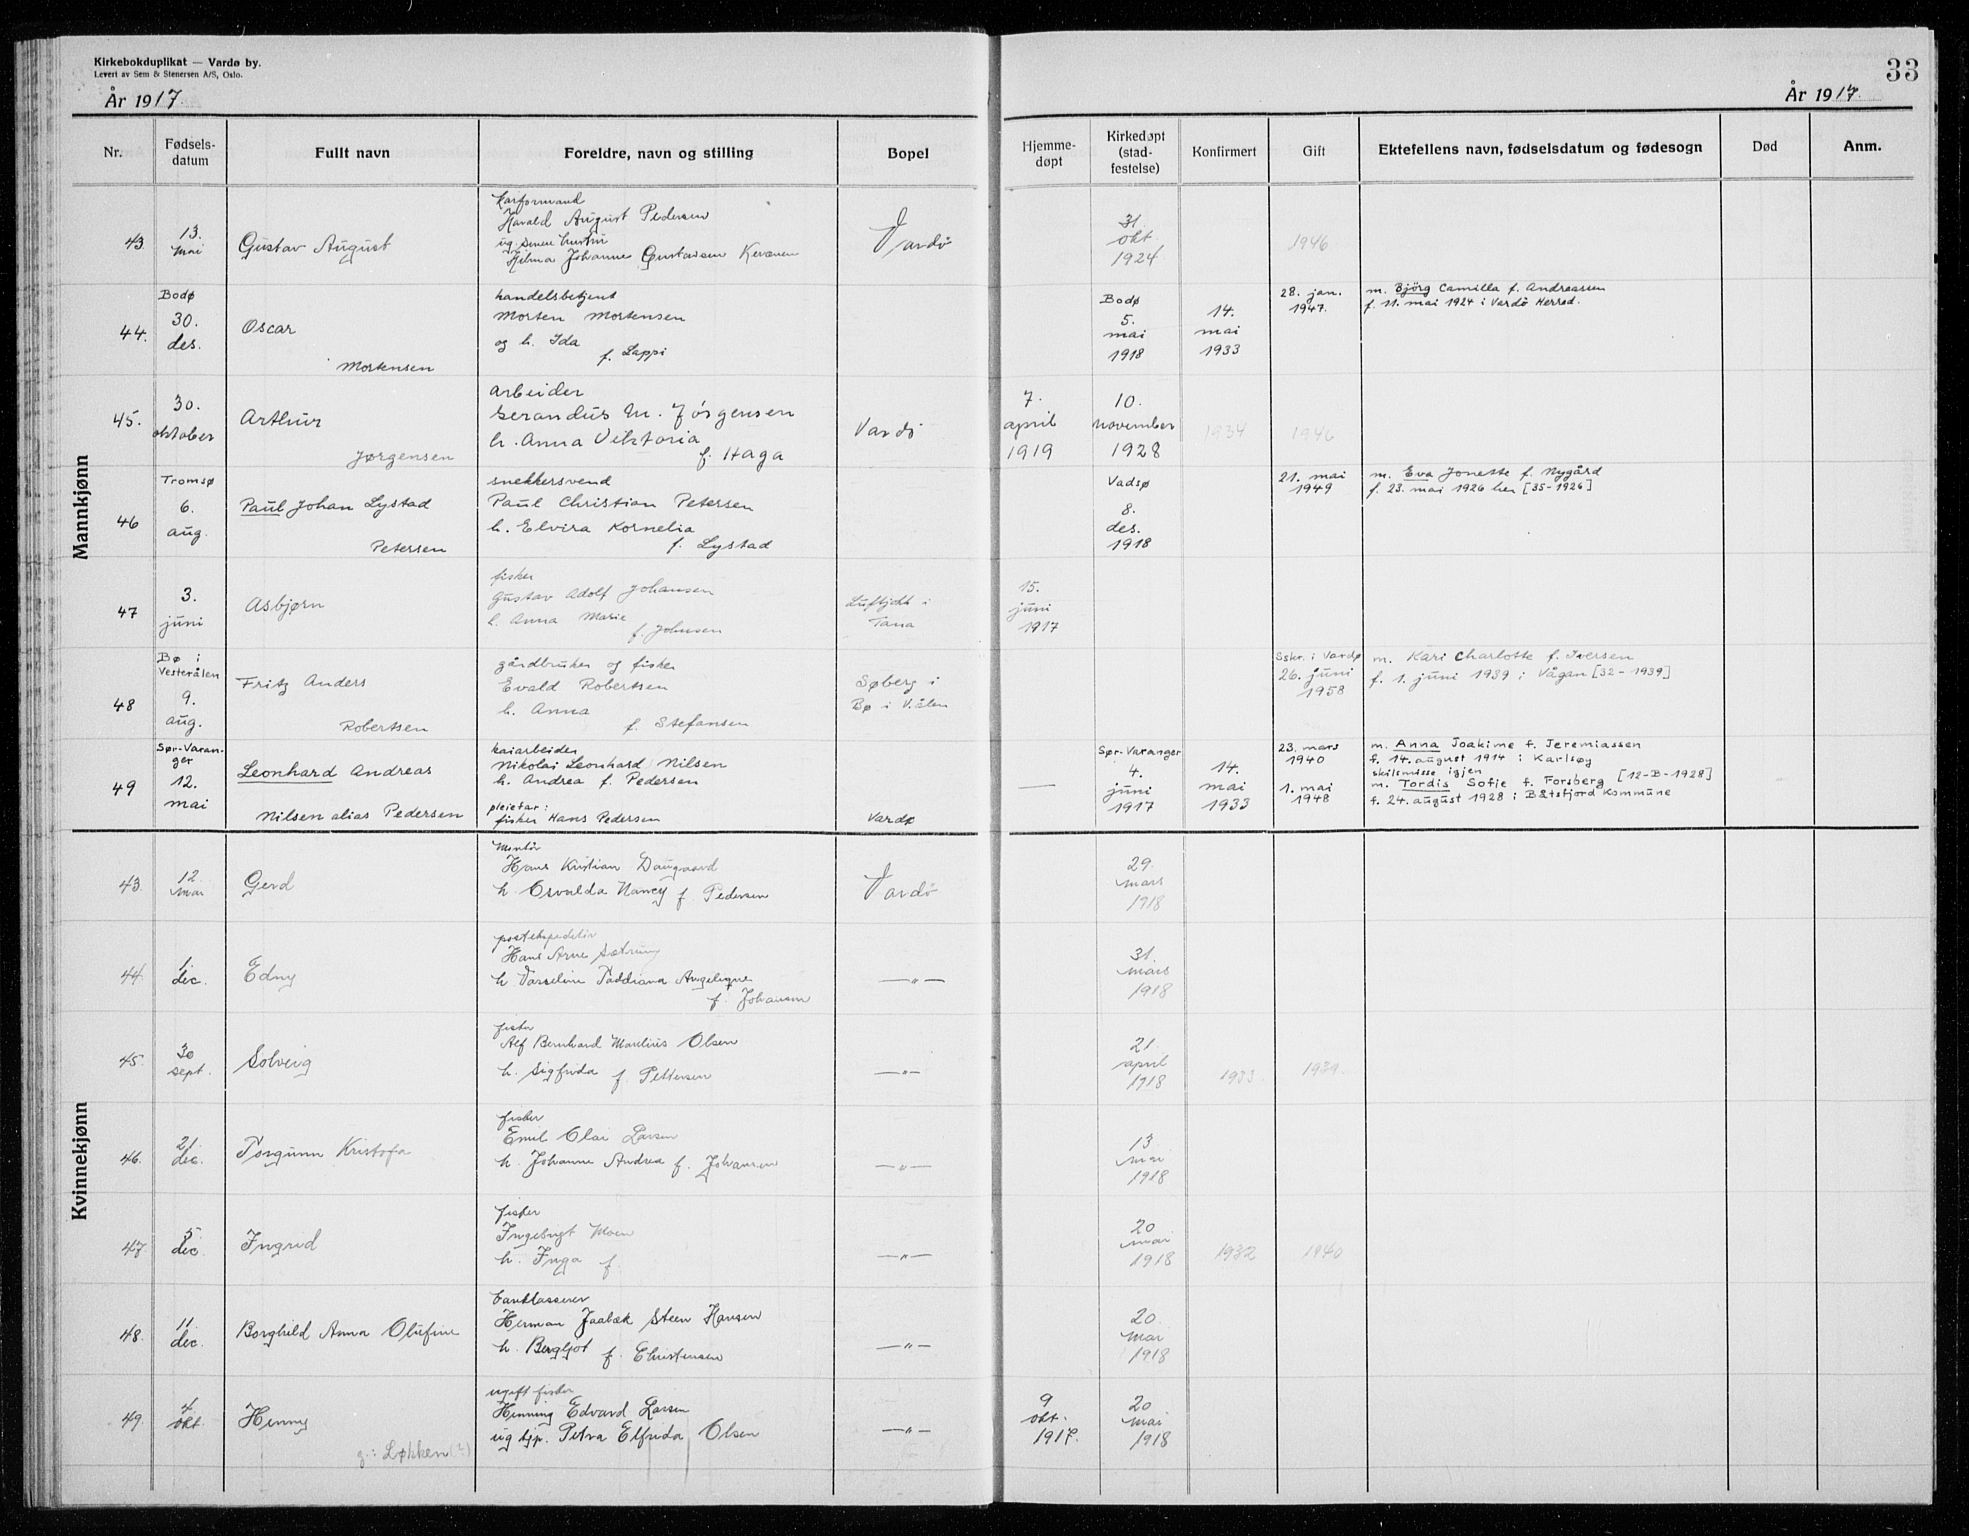 Kirkebokduplikat — Vardø by.
Levert av Sem & Stenersen A/S, Oslo.
År 1917
33
År 1917.
Nr.
Fødsels-
datum
Fullt navn
Foreldre, navn og stilling
Bopel
Hjemme-
døpt
Kirkedøpt
(stad-
festelse)
Konfirmert
Gift
Ektefellens navn, fødselsdatum og fødesogn
Død
Anm.
Mannkjønn
43
13.
mai
Gustav August
Harald August Pedersen
Hilma Johanne Gustavsen
Vardø
31.
okt
1924
1946
44.
Bodø
30.
des.
Oscar
Mortensen
handelsbetjent
Morten Mortensen
og h. Ida
f. Lappi
Bodø
5.
mai
1918
14.
mai
1933
28. jan.
1947.
m. Björg Camilla f. Andreassen
f. 11. mai 1924 i Vardö Herred.
45.
30.
oktober
Arthur
Jørgensen
arbeider
Gerandus M. Jörgensen
h. Anna Viktoria
f. Haga
Vardö
7.
april
1919
10.
november
1928
1934
1946
46
Tromsø
6.
aug.
Paul Johan Lystad
Petersen
snekkersvend
Paul Christian Petersen
h. Elvira Kornelia
f. Lystad
Vadsø
8.
des.
1918
21. mai
1949
m. Eva Jonette f. Nygård
f. 23. mai 1926 her [35-1926]
47
3.
juni
Asbjørn
fisker
Gustav Adolf Johansen
h. Anna Marie
f. Johnsen
Luftjokt i
Tana
15.
juni
1917
48
Bø i
Vesterålen
9.
aug.
Fritz Anders
Robertsen
gårdbruker og fisker
Evald Robertsen
h. Anna
f. Stefansen
Søberg i
Bø i V.ålen
Sskr. i Vardø
26. juni
1958
m. Kari Charlotte f. Iversen
f. 1. juni 1939 i Vågan [32-1939]
49
Sør-Varan-
ger
12.
mai
Leonhard Andreas
Nilsen alias Pedersen
kaiarbeider
Nikolai Leonhard Nilsen
h. Andrea f. Pedersen
pleiefar:
fisker Hans Pedersen
Vardø
—
Sør-Varanger
4.
juni
1917
14.
mai
1933
23. mars
1940
1. mai
1948
m. Anna Joakime f. Jeremiassen
f. 14. august 1914 i Karlsøy
skilsmisse igjen
m. Tordis Sofie f. Forsberg [12-B-1928]
f. 24. august 1928 i Båtsfjord kommune
Kvinnekjønn
43.
12.
mai
Gerd
Montör
Hans Kristian Daugaard
h. Osvalda Nancy f. Pedersen
Vardö
29.
mars
1918
44.
1.
dec.
Edny
postekspeditör
Hans Arne Sætrum
h
f. Johansen
—"—
31.
mars
1918
45.
30
sept.
Solveig
fisker
Alf Bernhard Marelius Olsen
h. Sigfrida f. Pettersen
—"—
21.
april
1918
1933.
1939.
46.
21.
dec.
Torgunn Kristofa
fisker
Emil Olai Larsen
h. Johanne Andrea f. Johansen
—"—
13
mai
1918
47.
5
dec.
Ingrid
fisker
Ingebrigt Moen
h. Inga f.
—"—
20
mai
1918
1932
1940
48.
11.
dec.
Borghild Anna Olufine
bankkasserer
Herman Jaabæk Steen Hansen
h. Bergljot f. Christensen
—"—
20.
mai
1918
49.
4
okt.
Henny
g.: Løkken (?)
ugift fisker
Henning Edvard Larsen
ug. Petra Elfrida Olsen
—"—
9
okt.
1917.
20
mai
1918